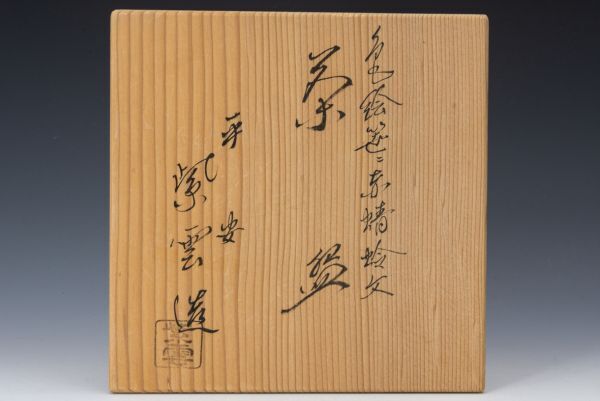 色絵笹ニ赤蜻蛉文
茶盌
平安
紫雲造
紫雲